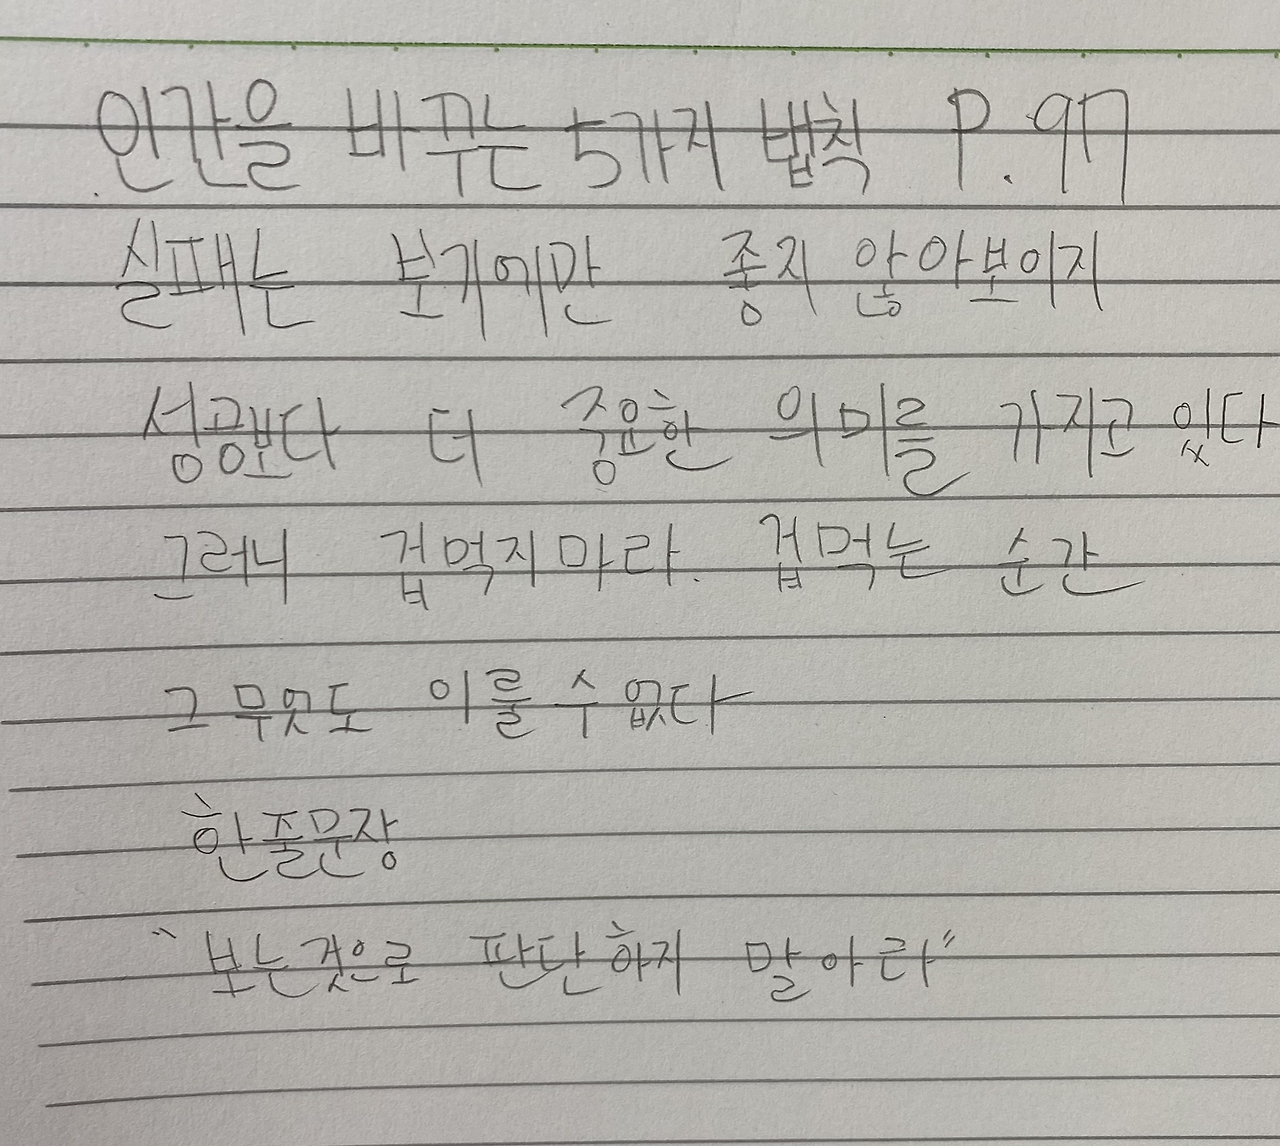 인간을 바꾸는 5가지 법칙 P.97
실패는 보기에만 좋지 않아보이지
성공보다 더 중요한 의미를 가지고 있다
그러니 겁먹지마라. 겁먹는 순간
그 무엇도 이룰 수 없다
한줄문장
"보는것으로 판단하지 말아라"